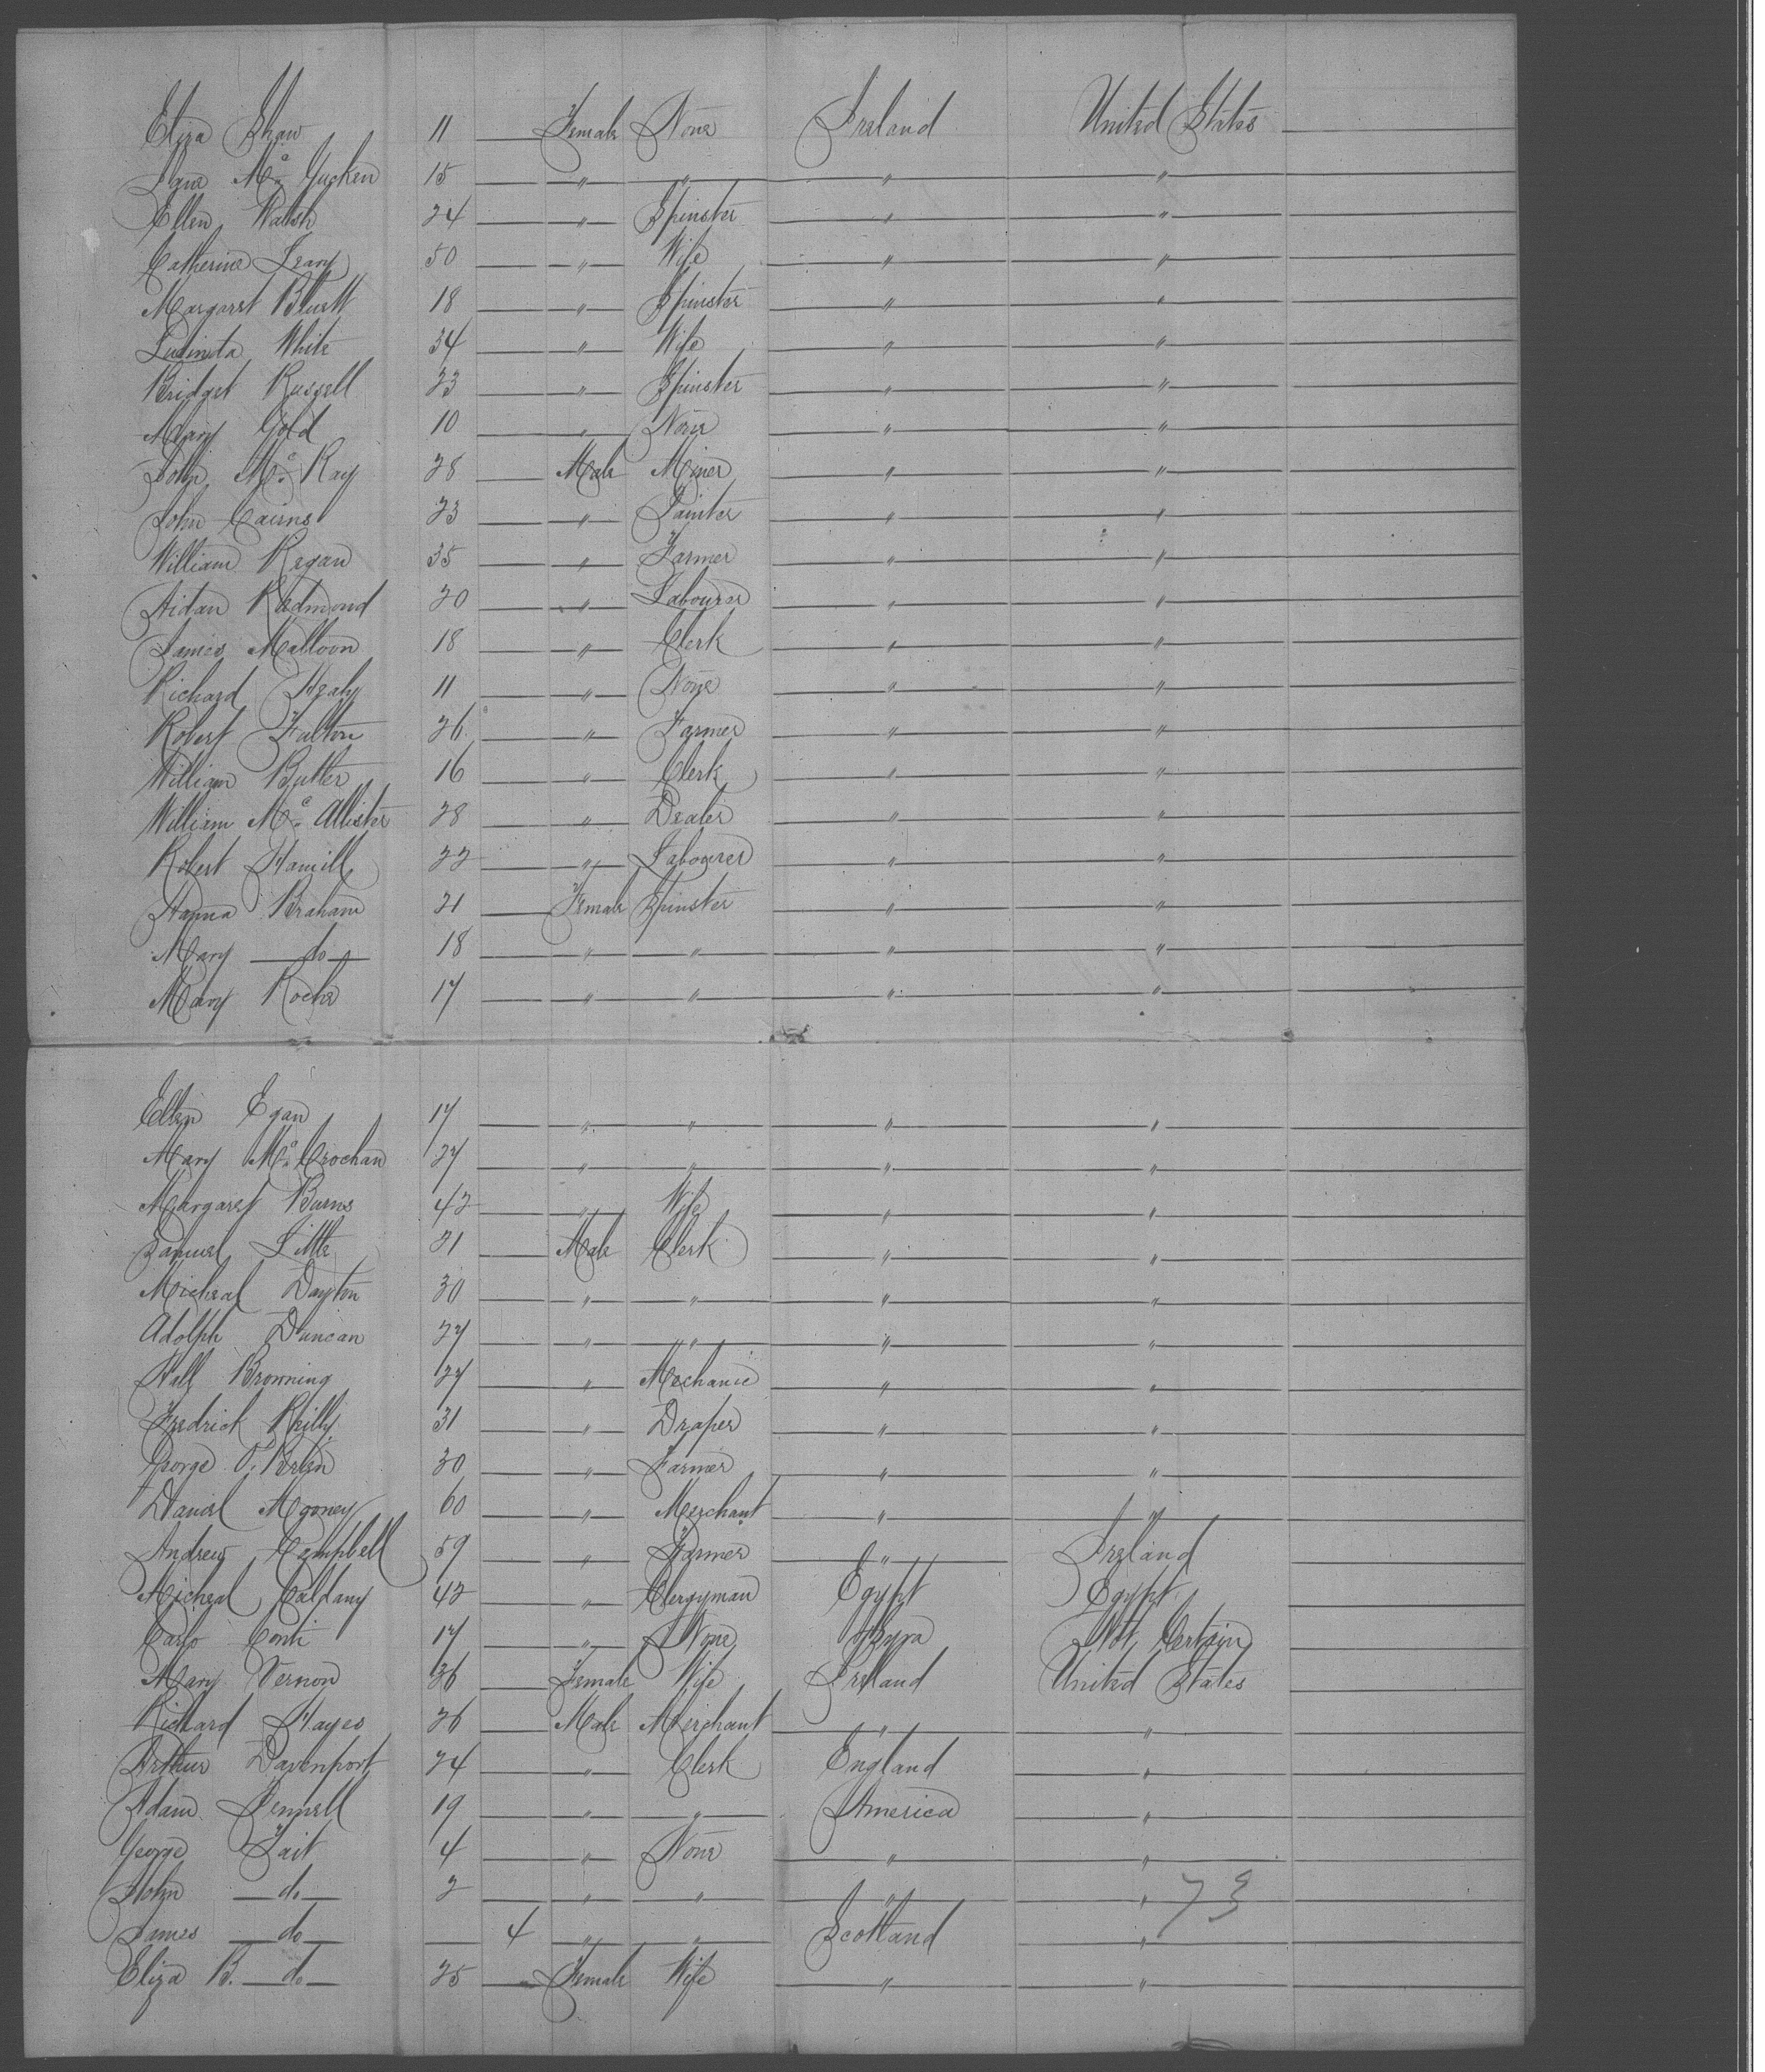 Eliza Shaw 11 Female None Ireland United States
Jane Mc Gucken 15 " " " "
Ellen Walsh 24 " Spinster " "
Catherine Leary 50 " Wife " "
Margaret Bluett 18 " Spinster " "
White 34 " Wife " "
Bridget Russell 23 " Spinster " "
Mary Gold 10 " None " "
John Mc Kay 28 Male Miner " "
John Cairns 23 " Painter " "
William Regan 35 " Farmer " "
Aidan Redmond 20 " Labourer " "
James Malloon 18 " Clerk " "
Richard Healy 11 " None " "
Robert Fulton 26 " Farmer " "
William Butler 16 " Clerk " "
William Mc Allister 28 " Dealer " "
Robert Hamill 22 " Labourer " "
Hanna Braham 21 Female Spinster " "
Mary do 18 " " " "
Mary Roche 17 " " " "
Ellen Egan 17 " " " "
Mary Mc Crochan 27 " " " "
Margaret Burns 42 " Wife " "
Samuel Little 21 Male Clerk " "
Micheal Dayton 30 " " " "
Adolph Duncan 27 " " " "
Browning 27 " Mechanic " "
Fredrick Reilly 31 " Draper " "
George O'Brien 30 " Farmer " "
Daniel Mooney 60 " Merchant " "
Andrew Campbell 59 " Farmer " Ireland
Micheal 42 " Clergyman Egypt Egypt
Carlo Conti 17 " None Not Certain
Mary Vernon 36 Female Wife Ireland United States
Richard Hayes 26 Male Merchant " "
Arthur Davenport 24 " Clerk England "
Adam Pennell 19 " " America "
George Tait 4 " None " "
John do 2 " " " " 73
James do 4 " " Scotland "
Eliza B. do 25 Female Wife " "